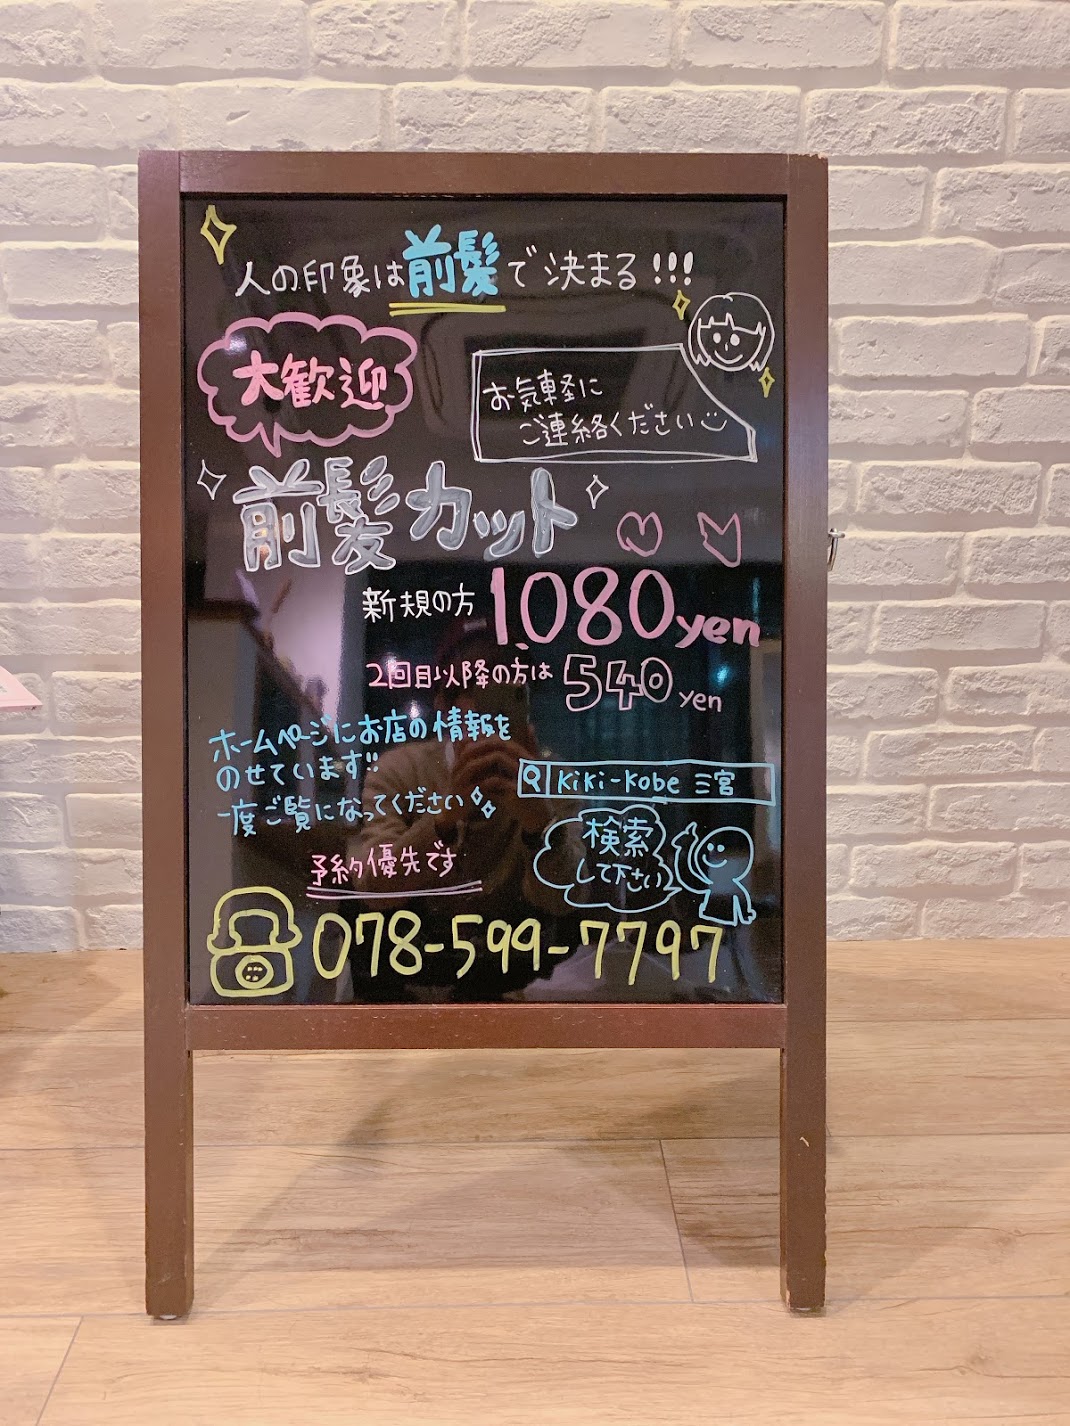 人の印象は前髪で決まる!!!
大歓迎
お気軽に
ご連絡ください
前髪カット
新規の方 1080yen
2回目以降の方は 540yen
ホームページにお店の情報を
のせています!!
一度ご覧になってください
KiKi-Kobe 三宮
検索
して下さい
予約優先です
078-599-7797